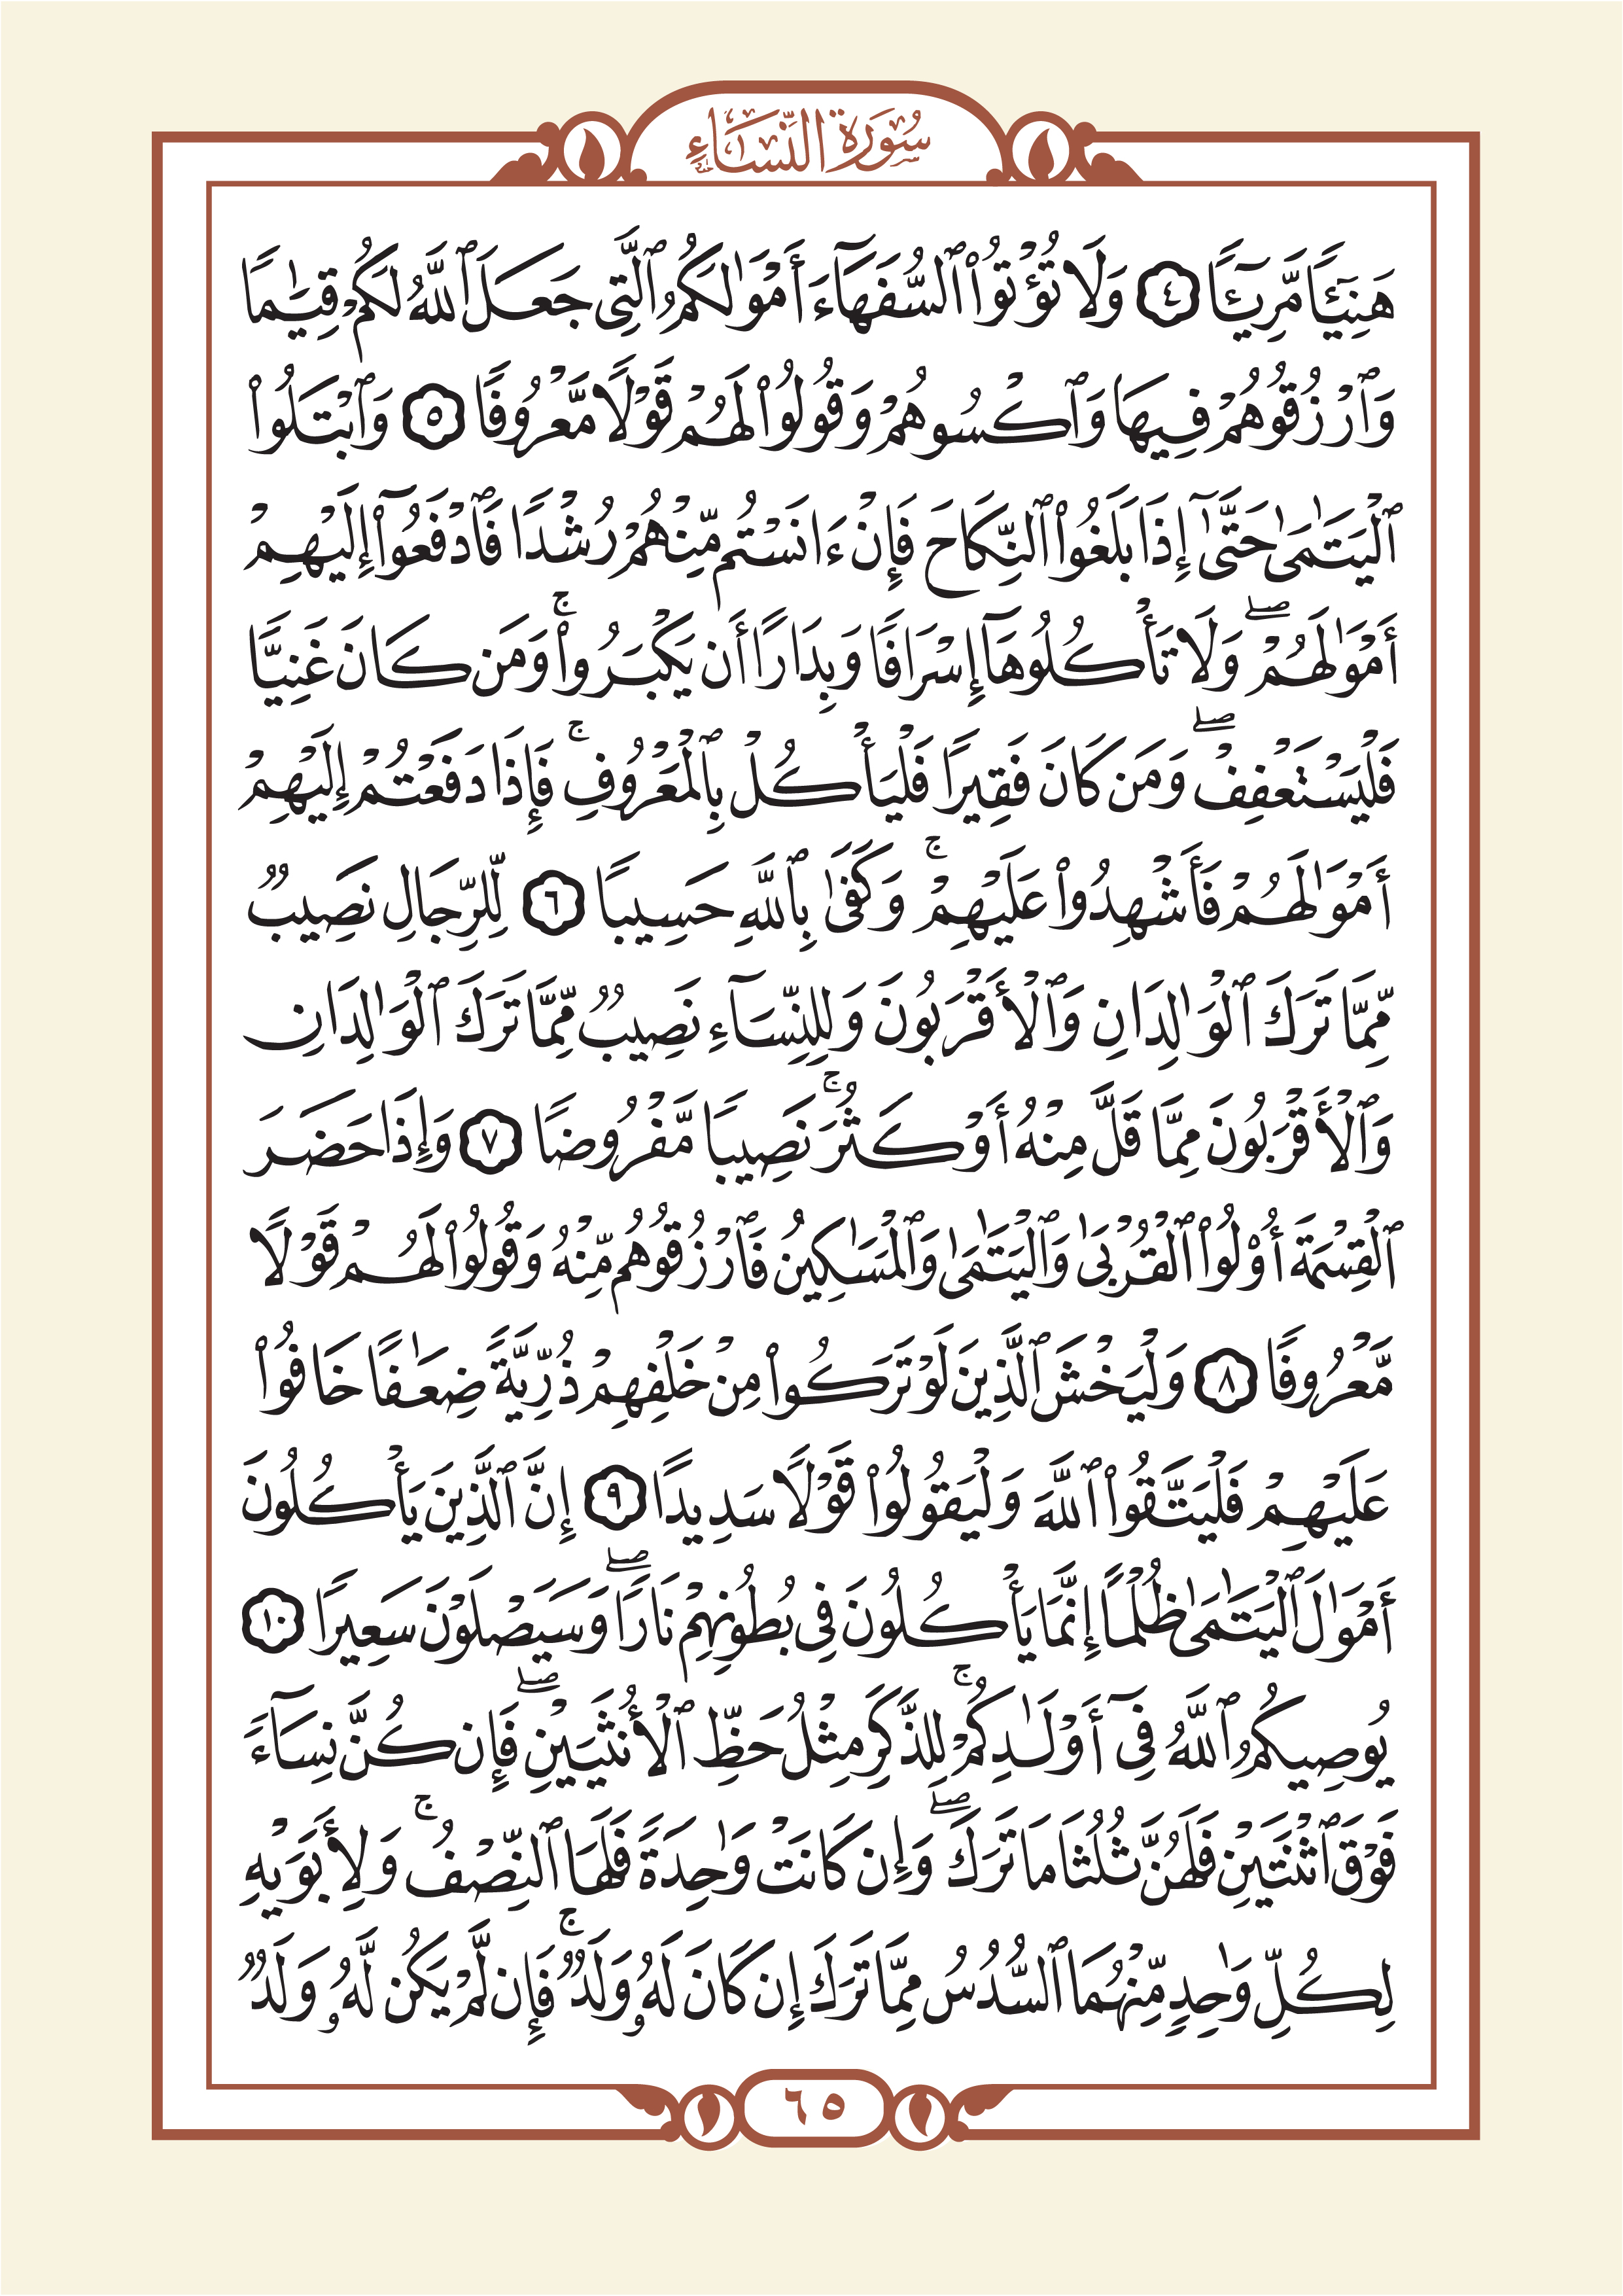 سُورَةُ النِّسَاءِ
هَنِيٓـًٔا مَّرِيٓـًٔا ٤ وَلَا تُؤْتُوا۟ ٱلسُّفَهَآءَ أَمْوَٰلَكُمُ ٱلَّتِى جَعَلَ ٱللَّهُ لَكُمْ قِيَٰمًا
وَٱرْزُقُوهُمْ فِيهَا وَٱكْسُوهُمْ وَقُولُوا۟ لَهُمْ قَوْلًا مَّعْرُوفًا ٥ وَٱبْتَلُوا۟
ٱلْيَتَٰمَىٰ حَتَّىٰٓ إِذَا بَلَغُوا۟ ٱلنِّكَاحَ فَإِنْ ءَانَسْتُم مِّنْهُمْ رُشْدًا فَٱدْفَعُوٓا۟ إِلَيْهِمْ
أَمْوَٰلَهُمْ ۖ وَلَا تَأْكُلُوهَآ إِسْرَافًا وَبِدَارًا أَن يَكْبَرُوا۟ ۚ وَمَن كَانَ غَنِيًّا
فَلْيَسْتَعْفِفْ ۖ وَمَن كَانَ فَقِيرًا فَلْيَأْكُلْ بِٱلْمَعْرُوفِ ۚ فَإِذَا دَفَعْتُمْ إِلَيْهِمْ
أَمْوَٰلَهُمْ فَأَشْهِدُوا۟ عَلَيْهِمْ ۚ وَكَفَىٰ بِٱللَّهِ حَسِيبًا ٦ لِّلرِّجَالِ نَصِيبٌ
مِّمَّا تَرَكَ ٱلْوَٰلِدَانِ وَٱلْأَقْرَبُونَ وَلِلنِّسَآءِ نَصِيبٌ مِّمَّا تَرَكَ ٱلْوَٰلِدَانِ
وَٱلْأَقْرَبُونَ مِمَّا قَلَّ مِنْهُ أَوْ كَثُرَ ۚ نَصِيبًا مَّفْرُوضًا ٧ وَإِذَا حَضَرَ
ٱلْقِسْمَةَ أُو۟لُوا۟ ٱلْقُرْبَىٰ وَٱلْيَتَٰمَىٰ وَٱلْمَسَٰكِينُ فَٱرْزُقُوهُم مِّنْهُ وَقُولُوا۟ لَهُمْ قَوْلًا
مَّعْرُوفًا ٨ وَلْيَخْشَ ٱلَّذِينَ لَوْ تَرَكُوا۟ مِنْ خَلْفِهِمْ ذُرِّيَّةً ضِعَٰفًا خَافُوا۟
عَلَيْهِمْ فَلْيَتَّقُوا۟ ٱللَّهَ وَلْيَقُولُوا۟ قَوْلًا سَدِيدًا ٩ إِنَّ ٱلَّذِينَ يَأْكُلُونَ
أَمْوَٰلَ ٱلْيَتَٰمَىٰ ظُلْمًا إِنَّمَا يَأْكُلُونَ فِى بُطُونِهِمْ نَارًا ۖ وَسَيَصْلَوْنَ سَعِيرًا ١٠
يُوصِيكُمُ ٱللَّهُ فِىٓ أَوْلَٰدِكُمْ ۚ لِلذَّكَرِ مِثْلُ حَظِّ ٱلْأُنثَيَيْنِ ۖ فَإِن كُنَّ نِسَآءً
فَوْقَ ٱثْنَتَيْنِ فَلَهُنَّ ثُلُثَا مَا تَرَكَ ۖ وَإِن كَانَتْ وَٰحِدَةً فَلَهَا ٱلنِّصْفُ ۚ وَلِأَبَوَيْهِ
لِكُلِّ وَٰحِدٍ مِّنْهُمَا ٱلسُّدُسُ مِمَّا تَرَكَ إِن كَانَ لَهُۥ وَلَدٌ ۚ فَإِن لَّمْ يَكُن لَّهُۥ وَلَدٌ
٦٥